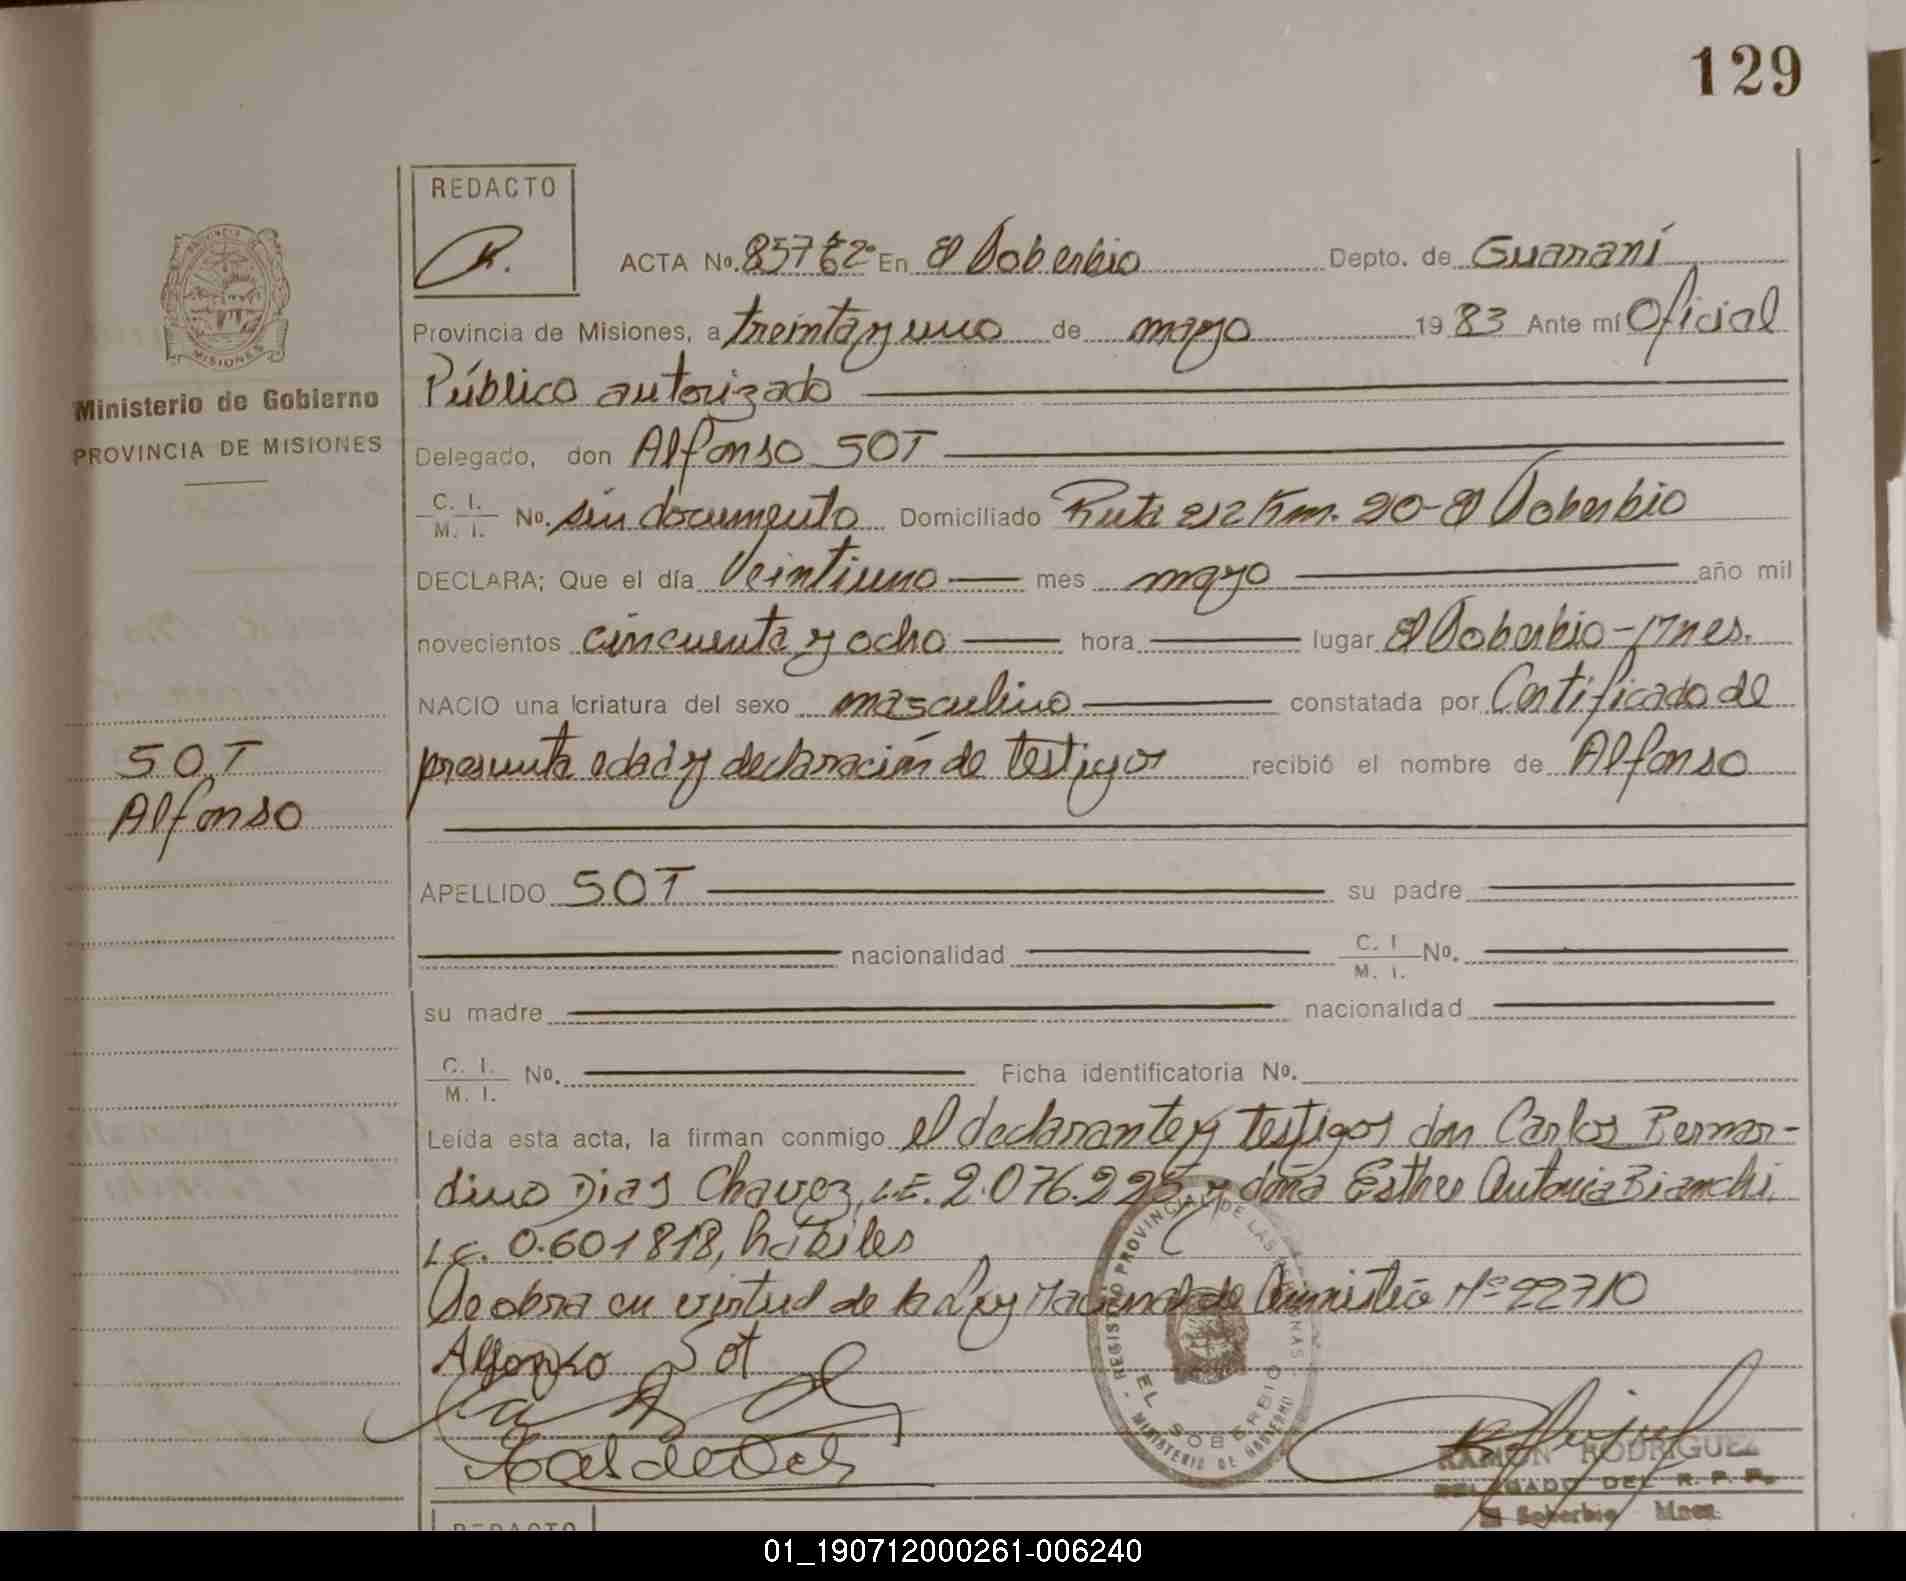 129
REDACTO
ACTA No. 85762º En El Soberbio Depto. de Guaraní
Provincia de Misiones, a treinta y uno de mayo 1983 Ante mí Oficial
Ministerio de Gobierno
Público autorizado
PROVINCIA DE MISIONES
Delegado, don Alfonso SOT
C. I. / M. I. No. sin documento Domiciliado Ruta 212 Km. 20-El Soberbio
DECLARA; Que el día Veintiuno mes mayo año mil
novecientos cincuenta y ocho hora lugar El Soberbio-Mnes.
NACIO una criatura del sexo masculino constatada por Certificado de
SOT
presunta edad y declaración de testigos recibió el nombre de Alfonso
Alfonso
APELLIDO SOT su padre
nacionalidad C. I / M. I. No.
su madre nacionalidad
C. I. / M. I. No. Ficha identificatoria No.
Leída esta acta, la firman conmigo el declarante y testigos don Carlos Bernar-
dino Dias Chavez, L.E. 2.076.225 y doña Esther Antonia Bianchi,
L.C. 0.601818, hábiles
Se obra en virtud de la Ley Nacional de Aminístia Nº 22710
Alfonso Sot
REGISTRO PROVINCIAL DE LAS PERSONAS
EL SOBERBIO
MINISTERIO DE GOBIERNO
RAMON RODRIGUEZ
DELEGADO DEL R. P. P.
El Soberbio Mnes.
REDACTO
01_190712000261-006240